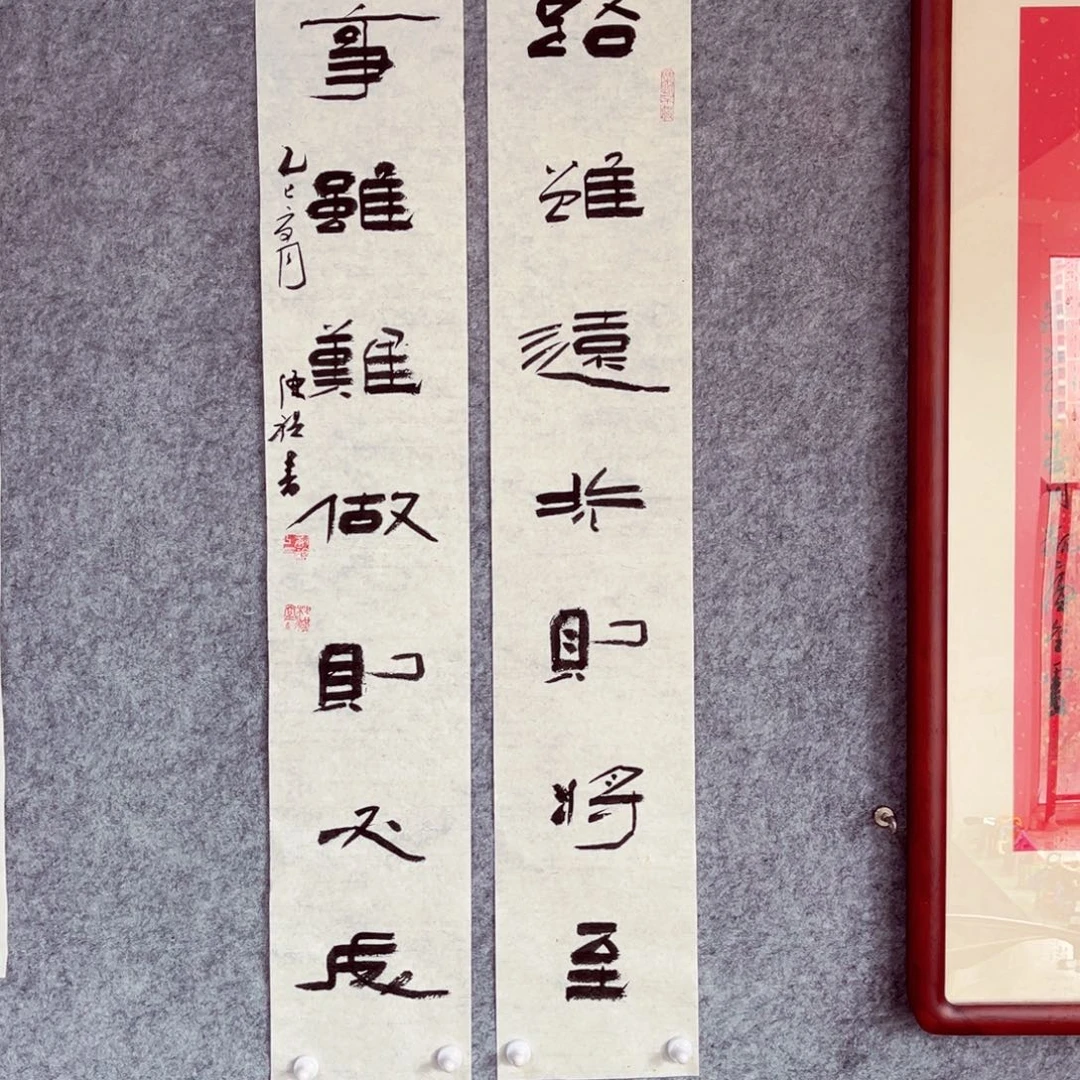 路雖遠行則將至
事雖難做則必成
乙巳夏月
書